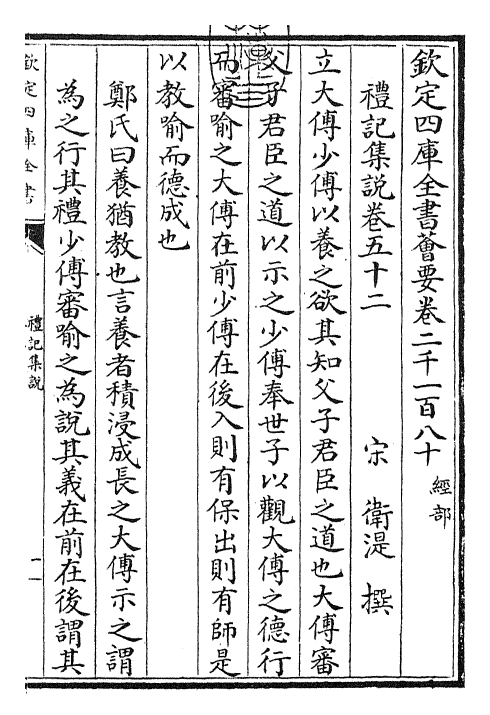 欽定四庫全書薈要卷二千一百八十
經部
禮記集說卷五十二
宋 衛湜 撰
立大傅少傅以養之欲其知父子君臣之道也大傅審
父子君臣之道以示之少傅奉世子以觀大傅之德行
而審喻之大傅在前少傅在後入則有保出則有師是
以教喻而德成也
鄭氏曰養猶教也言養者積浸成長之大傅示之謂
為之行其禮少傅審喻之為說其義在前在後謂其
欽定四庫全書
禮記集說
一